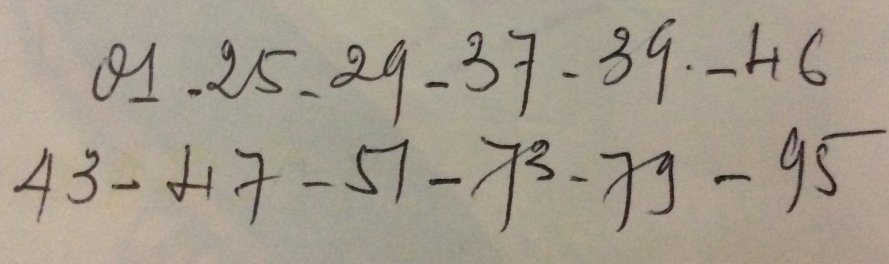 01 - 25 - 29 - 37 - 39 - 46
43 - 47 - 51 - 73 - 79 - 95